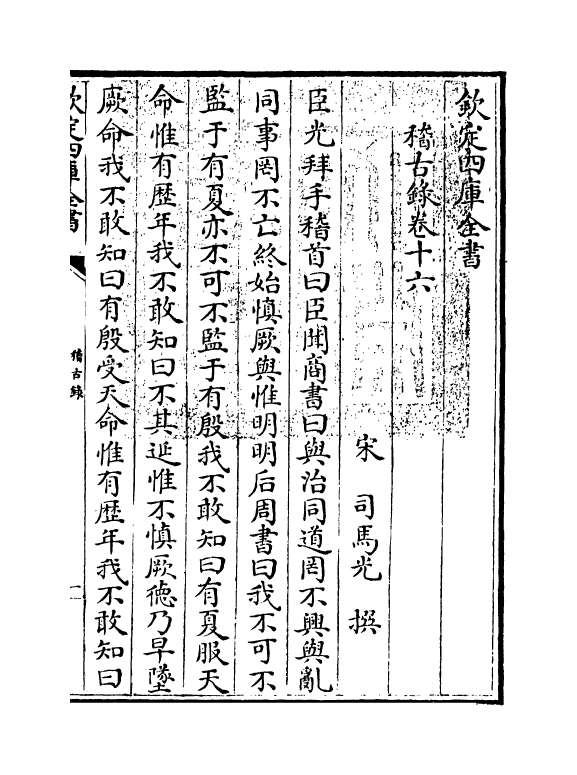 欽定四庫全書
稽古錄卷十六
宋 司馬光 撰
臣光拜手稽首曰臣聞商書曰與治同道罔不興與亂
同事罔不亡終始慎厥與惟明明后周書曰我不可不
監于有夏亦不可不監于有殷我不敢知曰有夏服天
命惟有歷年我不敢知曰不其延惟不慎厥德乃早墜
厥命我不敢知曰有殷受天命惟有歷年我不敢知曰
欽定四庫全書
稽古錄
一